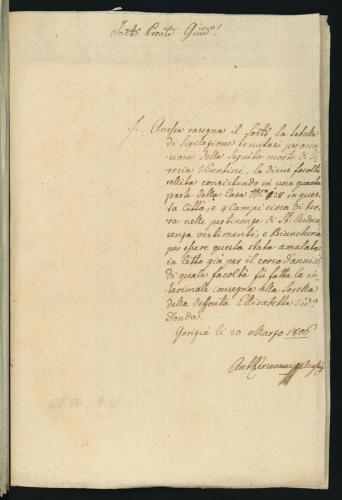 Annessa rasegna il sotto la tabella
di Sigilazione tenutasi per occa
sione della seguita morte di Te
resia Vicentine, la di cui facoltà
relita consistendo in una quarta
parte della Casa No: 218 in questa
Città, e 4 Campi circa di ter
ra nelle pertinenze di St. Andrea
senza vestimenti, e Biancheria
per essere questa stata amalata
in letto già per il corso d'anni
di quale facoltà fù fatta la in
terimale consegna alla Sorella
della deffonta Elisabetta Vid.a
Donda.
Gorizia li 20 Marzo 1806